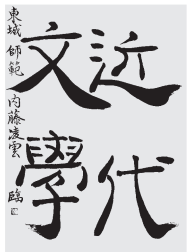 近代
文學
東城師範 内藤凌雲 臨